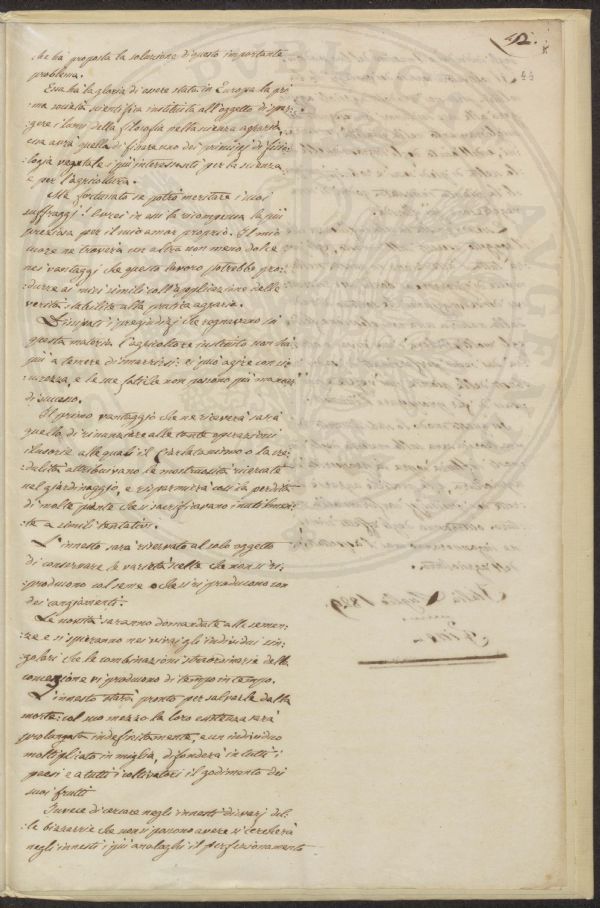 92.
44
che ha proposta la soluzione di questo importante
problema.
Essa ha la gloria di avere stata in Europa la pri=
=ma società scientifica instituita all'oggetto di spar=
=gere i lumi della filosofia nella scienza agraria,
essa avrà quella di fissare uno dei principj di fisio=
=logia vegetale i più interessanti per la scienza
e per l'agricoltura.
Me fortunato se potrò meritare i suoi
suffraggi! Avrei in essi la ricompensa la più
preziosa per il mio amor proprio. Il mio
cuore ne troverà un altra non meno dolce
nei vantaggi che questo lavoro potrebbe pro=
=durre ai miei simili coll'applicazione delle
verità stabilite alla pratica agraria.
Dissipati i pregiudizj che regnavano su
questa materia l'agricoltore instruito non ha
più a temere di smarrirsi: ei può agire con si=
=curezza, e le sue fatiche non possono più mancar
di successo.
Il primo vantaggio che ne riceverà sarà
quello di rinunziare alle tante operazioni
illusorie alle quali il Ciarlatanismo o la cre=
=dulità attribuivano le mostruosità ricercate
nel giardinaggio, e risparmierà così la perdita
di molte piante che si sacrificavano inutilmen=
=te a simili tentativi.
L'innesto sarà riservato al solo oggetto
di conservare le varietà scelte che non si ri=
=producono col seme o che si riproducono con
dei cangiamenti.
Le novità saranno domandate alle semen=
=ze e si spieranno nei vivaj gli individui sin=
=golari che le combinazioni straordinarie della
concezione vi producono di tempo in tempo.
L'innesto starà pronto per salvarle dalla
morte: col suo mezzo la loro esistenza sarà
prolungata indefinitamente, e un individuo
moltiplicato in miglia, diffonderà in tutti i
paesi e a tutti i coltivatori il godimento dei
suoi frutti
Invece di cercare negli innesti diversj del=
=le bizzarrie che non si possono avere si cercherà
negli innesti i più analoghi il perfezionamento